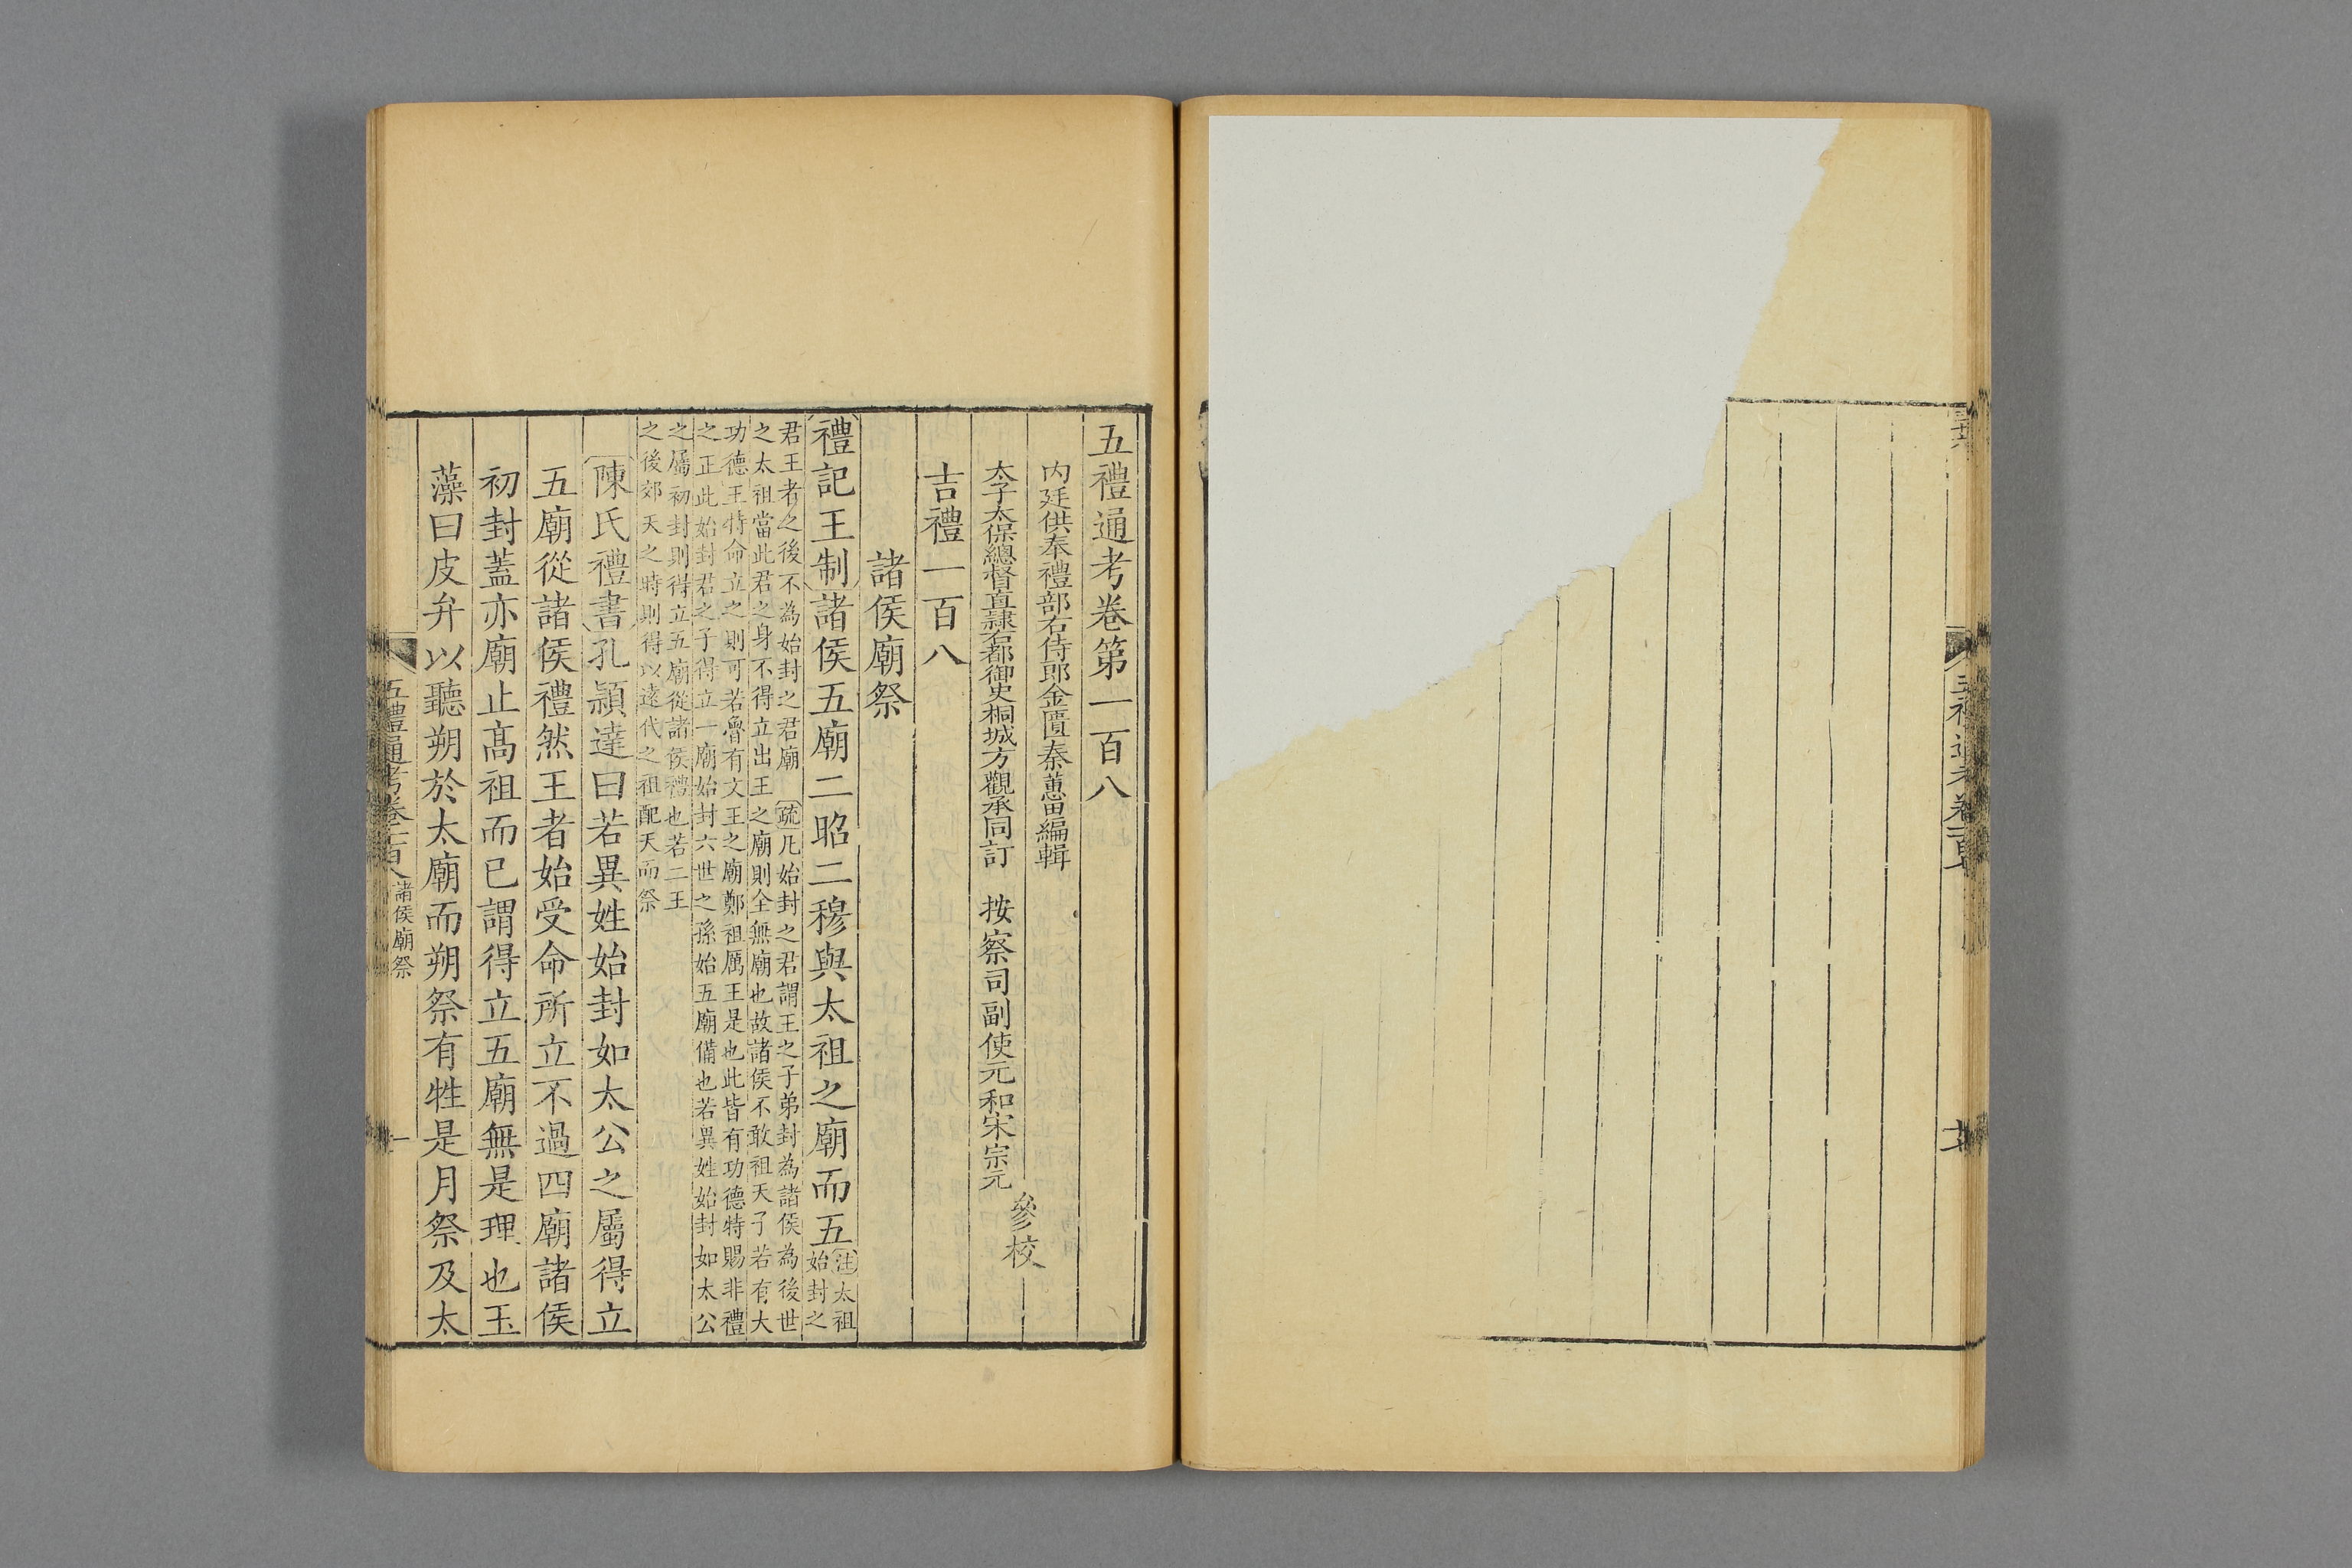 五禮通考卷第一百八
内廷供奉禮部右侍郎金匱秦蕙田編輯
太子太保總督直隸右都御史桐城方觀承同訂 按察司副使元和宋宗元
參校
吉禮一百八
諸侯廟祭
禮記王制諸侯五廟二昭二穆與太祖之廟而五
注太祖
始封之
君王者之後不為始封之君廟 疏凡始封之君謂王之子弟封為諸侯為後世
之太祖當此君之身不得立出王之廟則全無廟也故諸侯不敢祖天子若有大
功德王特命立之則可若魯有文王之廟鄭祖厲王是也此皆有功德特賜非禮
之正此始封君之子得立一廟始封六世之孫始五廟備也若異姓始封如太公
之屬初封則得立五廟從諸侯禮也若二王
之後郊天之時則得以遠代之祖配天而祭
陳氏禮書孔穎達曰若異姓始封如太公之屬得立
五廟從諸侯禮然王者始受命所立不過四廟諸侯
初封蓋亦廟止高祖而已謂得立五廟無是理也玉
藻曰皮弁以聽朔於太廟而朔祭有牲是月祭及太
五禮通考卷一百八 諸侯廟祭 一